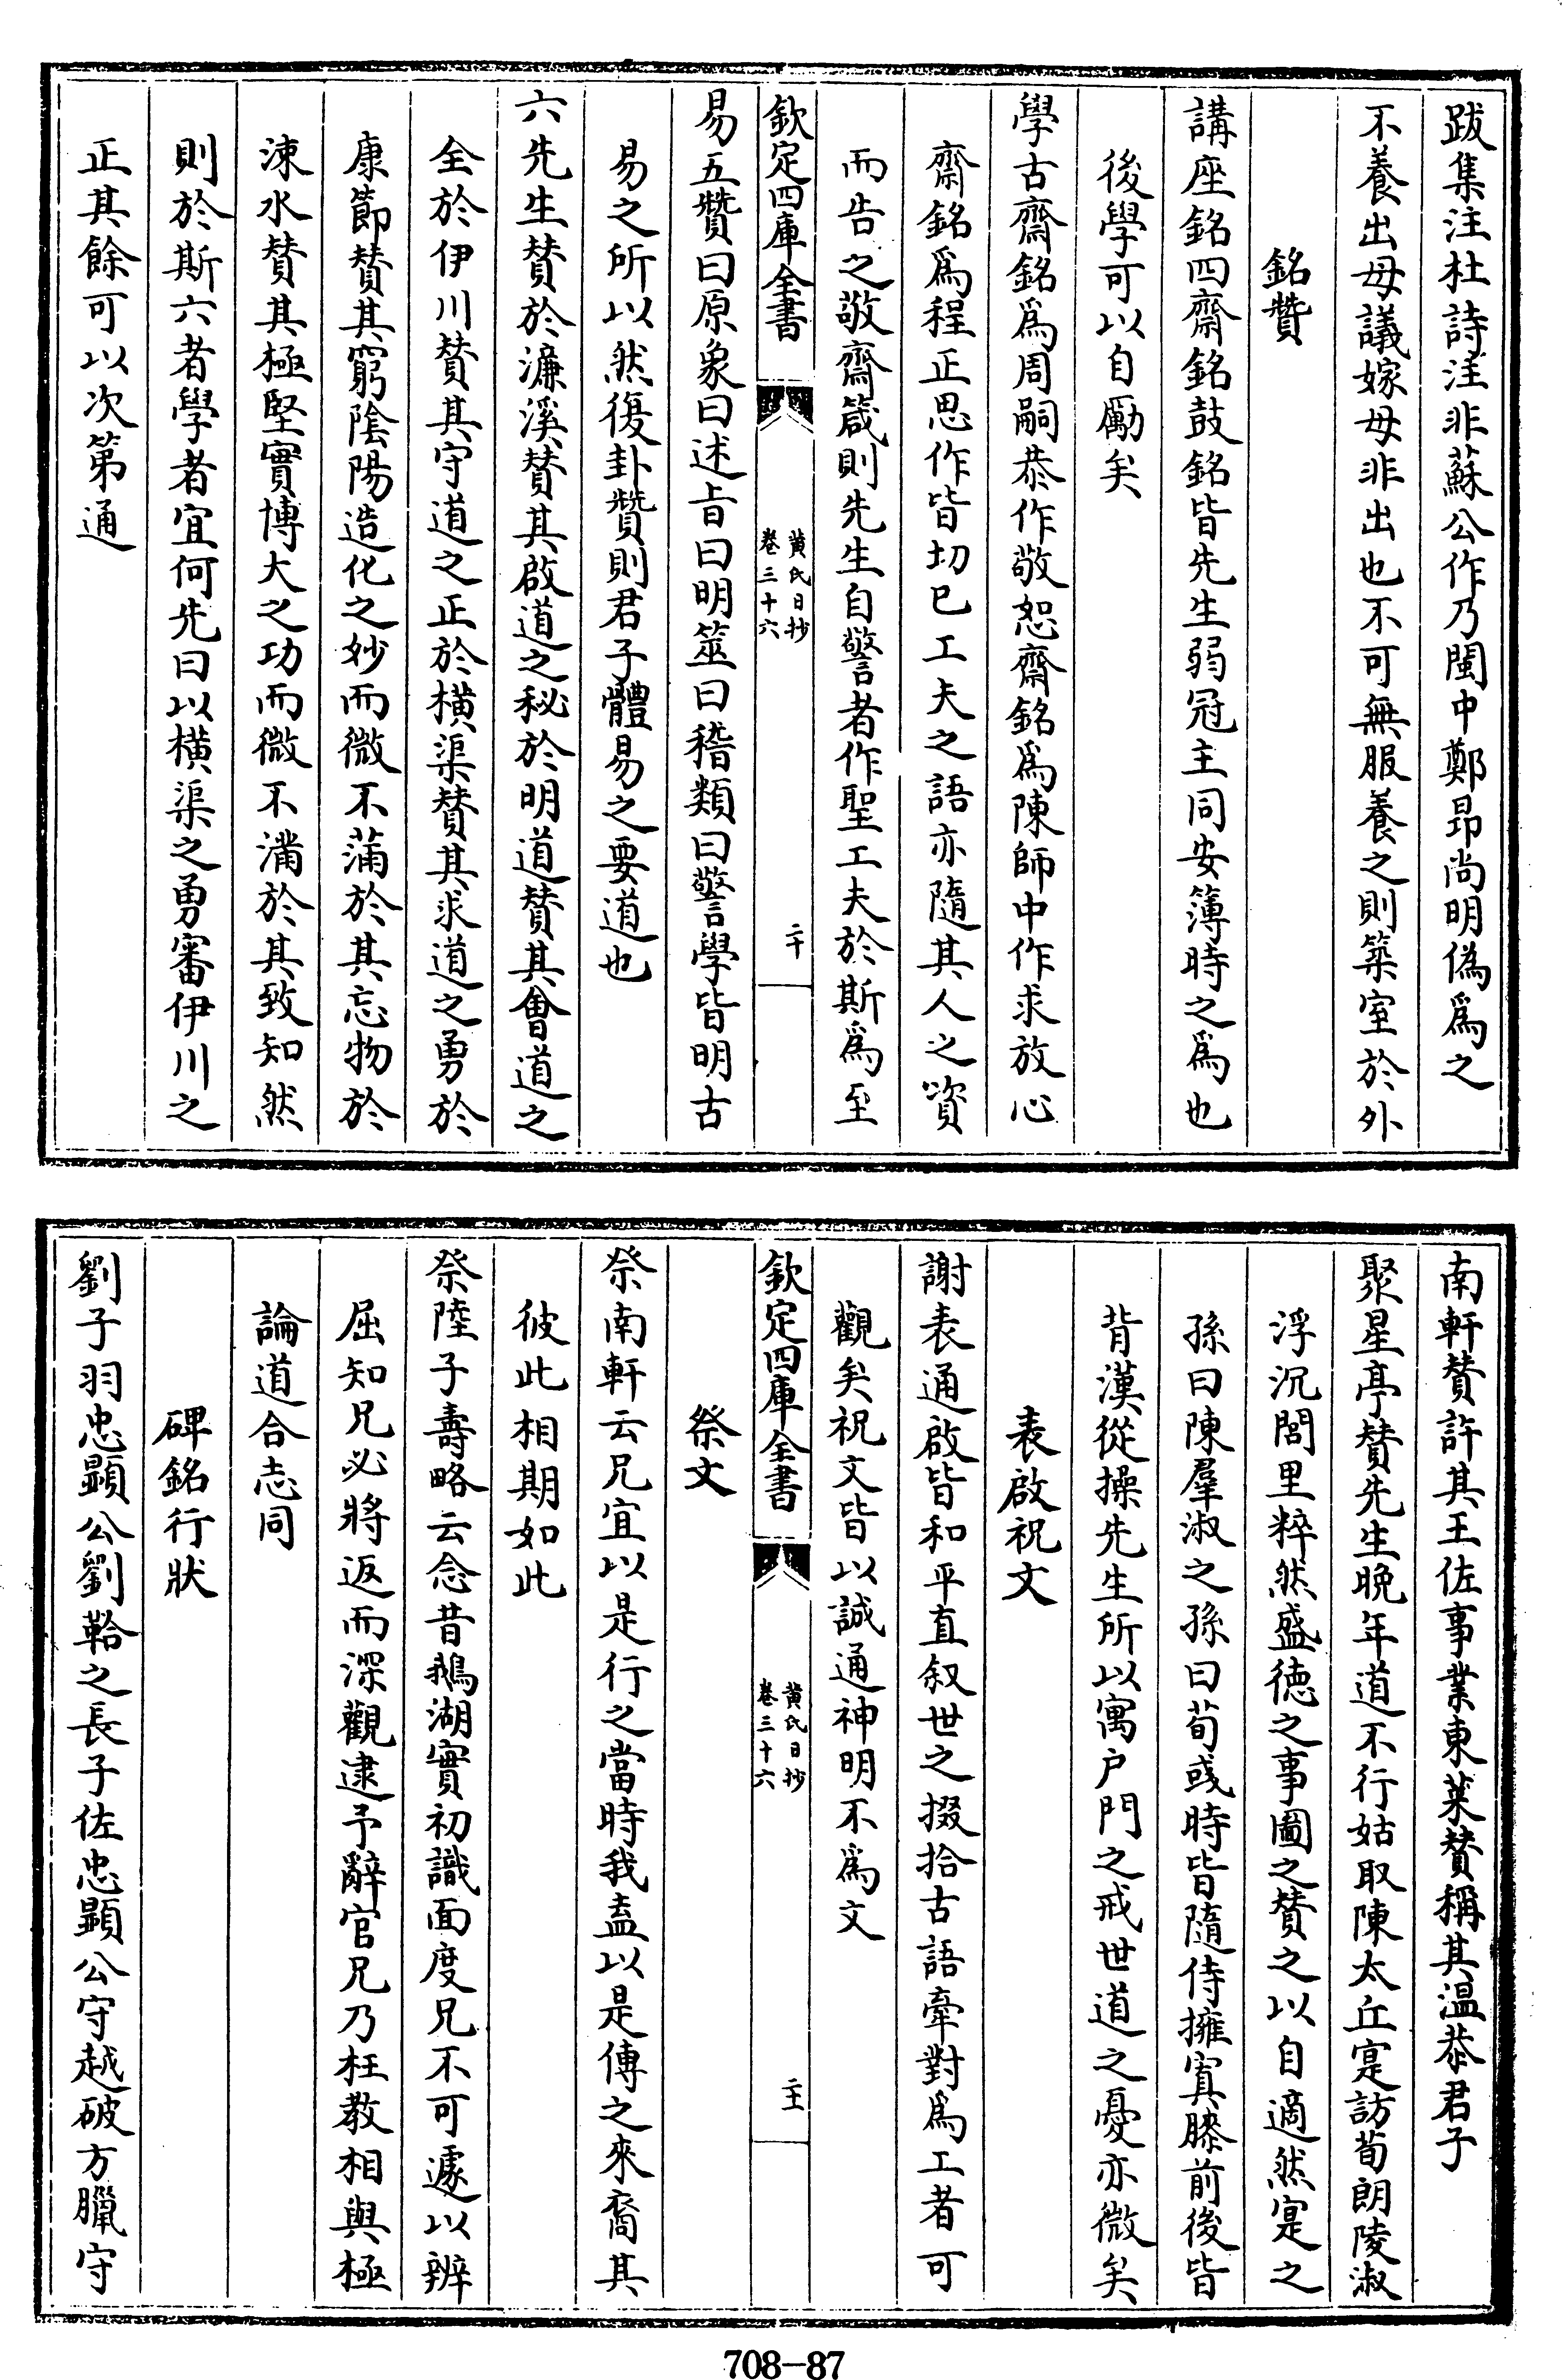 跋集注杜詩注非蘇公作乃閩中鄭昂尚明偽爲之
不養出母議嫁母非出也不可無服養之則築室於外
銘贊
講座銘四齋銘鼓銘皆先生弱冠主同安簿時之爲也
後學可以自勵矣
學古齋銘爲周嗣恭作敬恕齋銘爲陳師中作求放心
齋銘爲程正思作皆切已工夫之語亦隨其人之資
而告之敬齋箴則先生自警者作聖工夫於斯爲至
欽定四庫全書
黄氏日抄
卷三十六
二十
易五贊曰原象曰述旨曰明筮曰稽類曰警學皆明古
易之所以然復卦贊則君子體易之要道也
六先生賛於濂溪賛其啟道之秘於明道賛其會道之
全於伊川賛其守道之正於橫渠賛其求道之勇於
康節賛其窮陰陽造化之妙而微不滿於其忘物於
涑水賛其極堅實博大之功而微不滿於其致知然
則於斯六者學者宜何先曰以橫渠之勇審伊川之
正其餘可以次第通
南軒賛許其王佐事業東萊賛稱其温恭君子
聚星亭賛先生晚年道不行姑取陳太丘寔訪荀朗陵淑
浮沉閭里粹然盛徳之事圖之賛之以自適然寔之
孫曰陳羣淑之孫曰荀彧時皆隨侍擁寘膝前後皆
背漢從操先生所以寓户門之戒世道之憂亦微矣
表啟祝文
謝表通啟皆和平直叙世之掇拾古語牽對爲工者可
觀矣祝文皆以誠通神明不爲文
欽定四庫全書
黄氏日抄
卷三十六
二十一
祭文
祭南軒云兄宜以是行之當時我盍以是傳之來裔其
彼此相期如此
祭陸子壽略云念昔鵝湖實初識面度兄不可遽以辨
屈知兄必將返而深觀逮予辭官兄乃枉教相與極
論道合志同
碑銘行狀
劉子羽忠顯公劉韐之長子佐忠顯公守越破方臘守
708-87